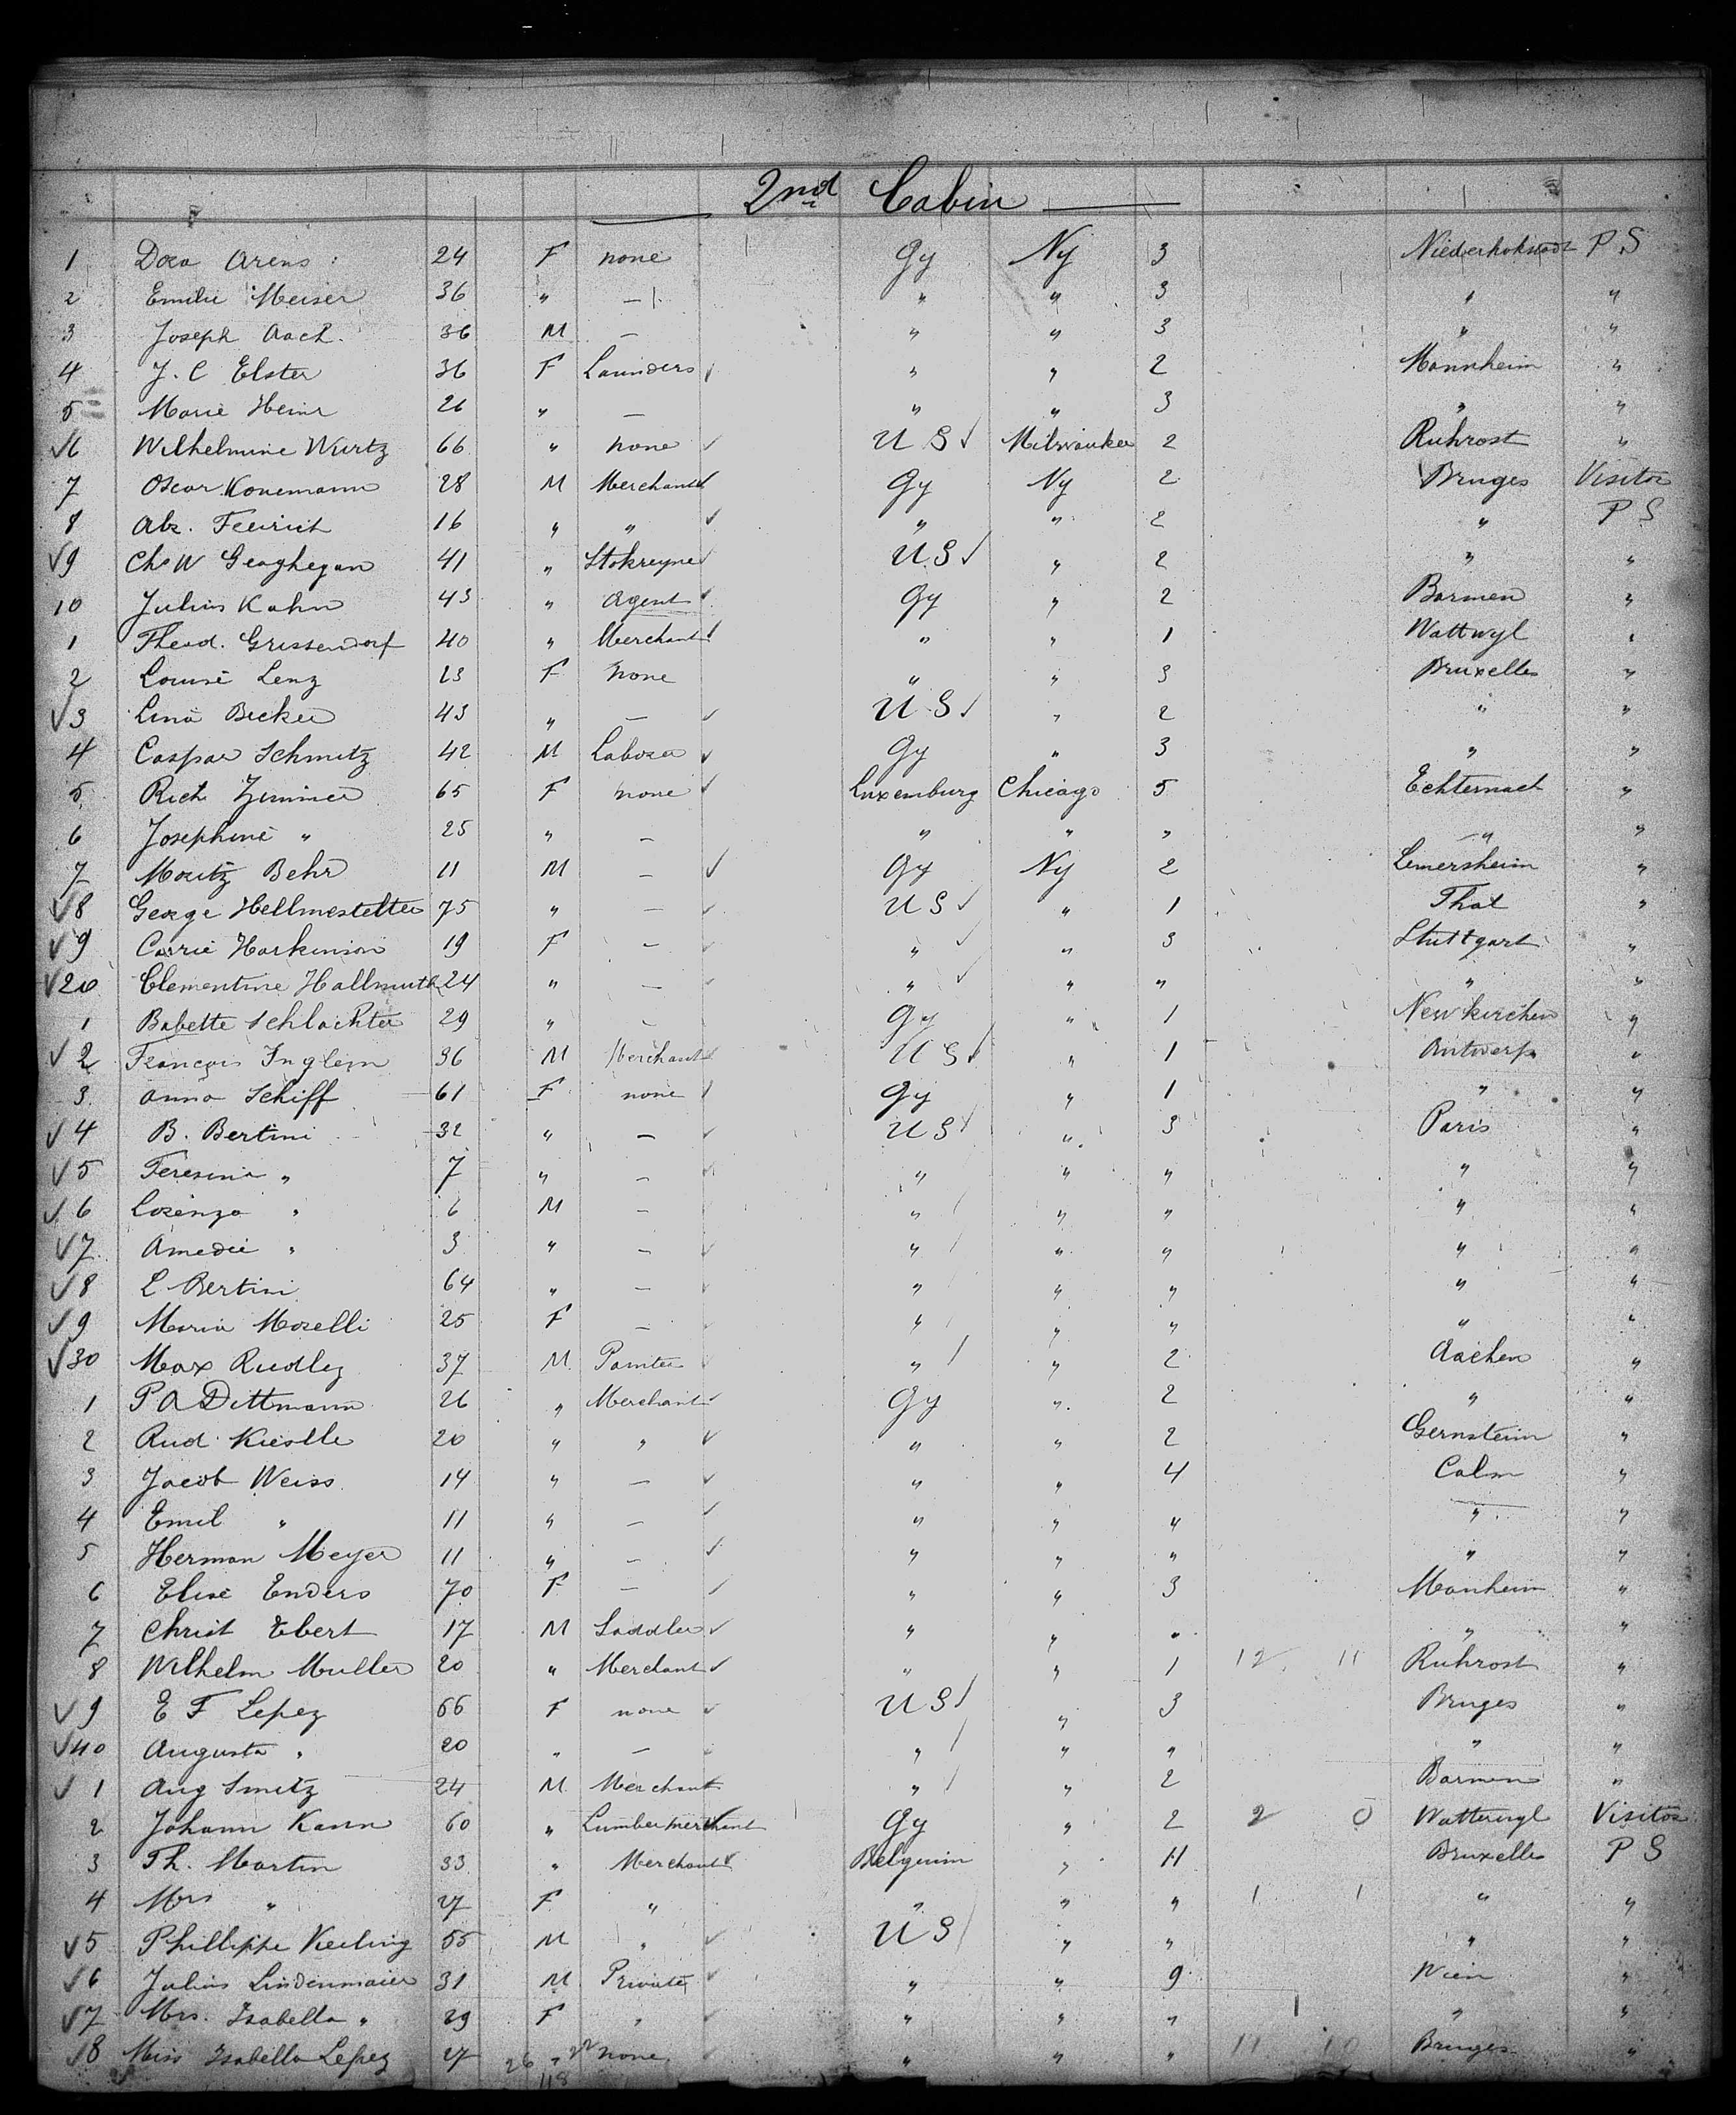 2nd Cabin
1 Dora Arens 24 F none Gy Ny 3 P S
2 Emilie Meiser 36 " — " " 3 " "
3 Joseph Aach 36 M — " " 3 " "
4 J. C Elster 36 F Launders " " 2 Mannheim "
5 Marie Heinr 26 " — " " 3 " "
✓6 Wilhelmine Wurtz 66 " none ✓ U S ✓ Milwaukee 2 Ruhrost "
7 Oscar Konemann 28 M Merchant ✓ Gy Ny 2 Bruges Visitor
8 Abr. 16 " " ✓ " " 2 " P S
✓9 Chs W Geoghegan 41 " ✓ U.S ✓ " 2 " "
10 Julius Kahn 43 " Agent ✓ Gy " 2 Barmen "
1 Theod. Grissendorf 40 " Merchant ✓ " " 1 Wattwyl "
2 Louise Lenz 23 F none " " 3 Bruxelles "
✓3 Lina Becker 43 " — ✓ U S ✓ " 2 " "
4 Caspar Schmitz 42 M Laborer ✓ Gy " 3 " "
5 Rich Zimmer 65 F none ✓ Luxemburg Chicago 5 Echternach "
6 Josephine " 25 " — " " " " "
7 Moritz Behr 11 M — ✓ Gy Ny 2 Lemersheim "
✓8 George Hellmestetter 75 " — ✓ U S ✓ " 1 Thal "
✓9 Carrie Harkinson 19 F — ✓ " ✓ " 3 Stuttgart "
✓20 Clementine Hallmuth 24 " — ✓ " ✓ " " " "
1 Babette Schlachter 29 " — Gy " 1 Newkirchen "
✓2 Francois Inglem 36 M Merchant ✓ U S ✓ " 1 Antwerp "
3 Anna Schiff 61 F none ✓ Gy " 1 " "
✓4 B. Bertini 32 " — ✓ U S ✓ " 3 Paris "
✓5 Teresina " 7 " — ✓ " " " " "
✓6 Lorenzo " 6 M — " / " " " "
✓7 Amedie " 3 " — ✓ " / " " " "
✓8 L Bertini 64 " — ✓ " / " " " "
✓9 Maria Morelli 25 F — ✓ " / " " " "
✓30 Max Rudley 37 M Painter ✓ " / " 2 Aachen "
1 P A Dittmann 26 " Merchant ✓ Gy " 2 " "
2 Rud Kieslle 20 " " ✓ " " 2 Gernsteim "
3 Jacob Weiss 14 " — ✓ " " 4 Calm "
4 Emil " 11 " — ✓ " " " " "
5 Herman Meyer 11 " — ✓ " " " " "
6 Elise Enders 70 F — ✓ " " 3 Manheim "
7 Christ Ebert 17 M Saddler ✓ " " " " "
8 Wilhelm Muller 20 " Merchant ✓ " " 1 12 11 Ruhrost "
✓9 E F Lepez 66 F none ✓ U S / " 3 Bruges "
✓40 Augusta " 20 " — ✓ " / " " " "
✓1 Aug Smitz 24 M Merchant " / " 2 Barmen "
2 Johann Kann 60 " Lumbermerchant Gy " 2 2 0 Watterwyl Visitor
3 Th. Martin 33 " Merchant ✓ Belguim " 11 Bruxelles P S
4 Mrs " 27 F " " " " 1 1 " "
✓5 Phillippe Keiling 55 M " ✓ U S / " " " "
✓6 Julius Lindenmaier 31 M Private ✓ " " 9 Wien "
✓7 Mrs. Isabella " 29 F " ✓ " " " " "
✓8 Miss Isabella Lepez 27 26 " 22 none ✓ " " " 11 10 Bruges "
118